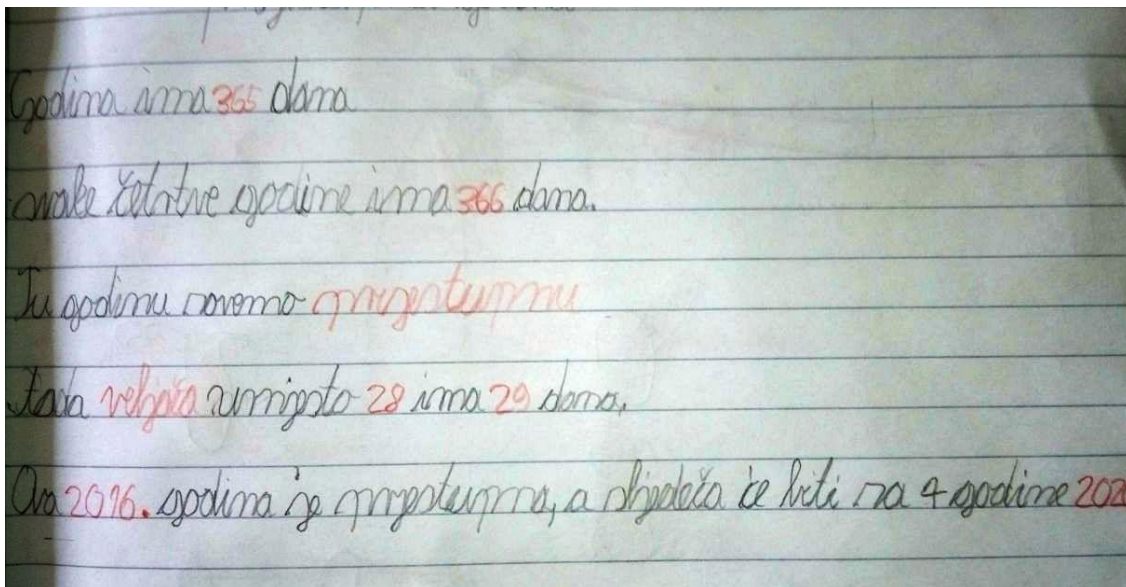 Godina ima 365 dana
svake četvrte godine ima 366 dana.
Tu godinu zovemo prijestupnu
tada veljača umijesto 28 ima 29 dana.
Ova 2016. godina je prijestupna, a slijedeća će biti za 4 godine 202